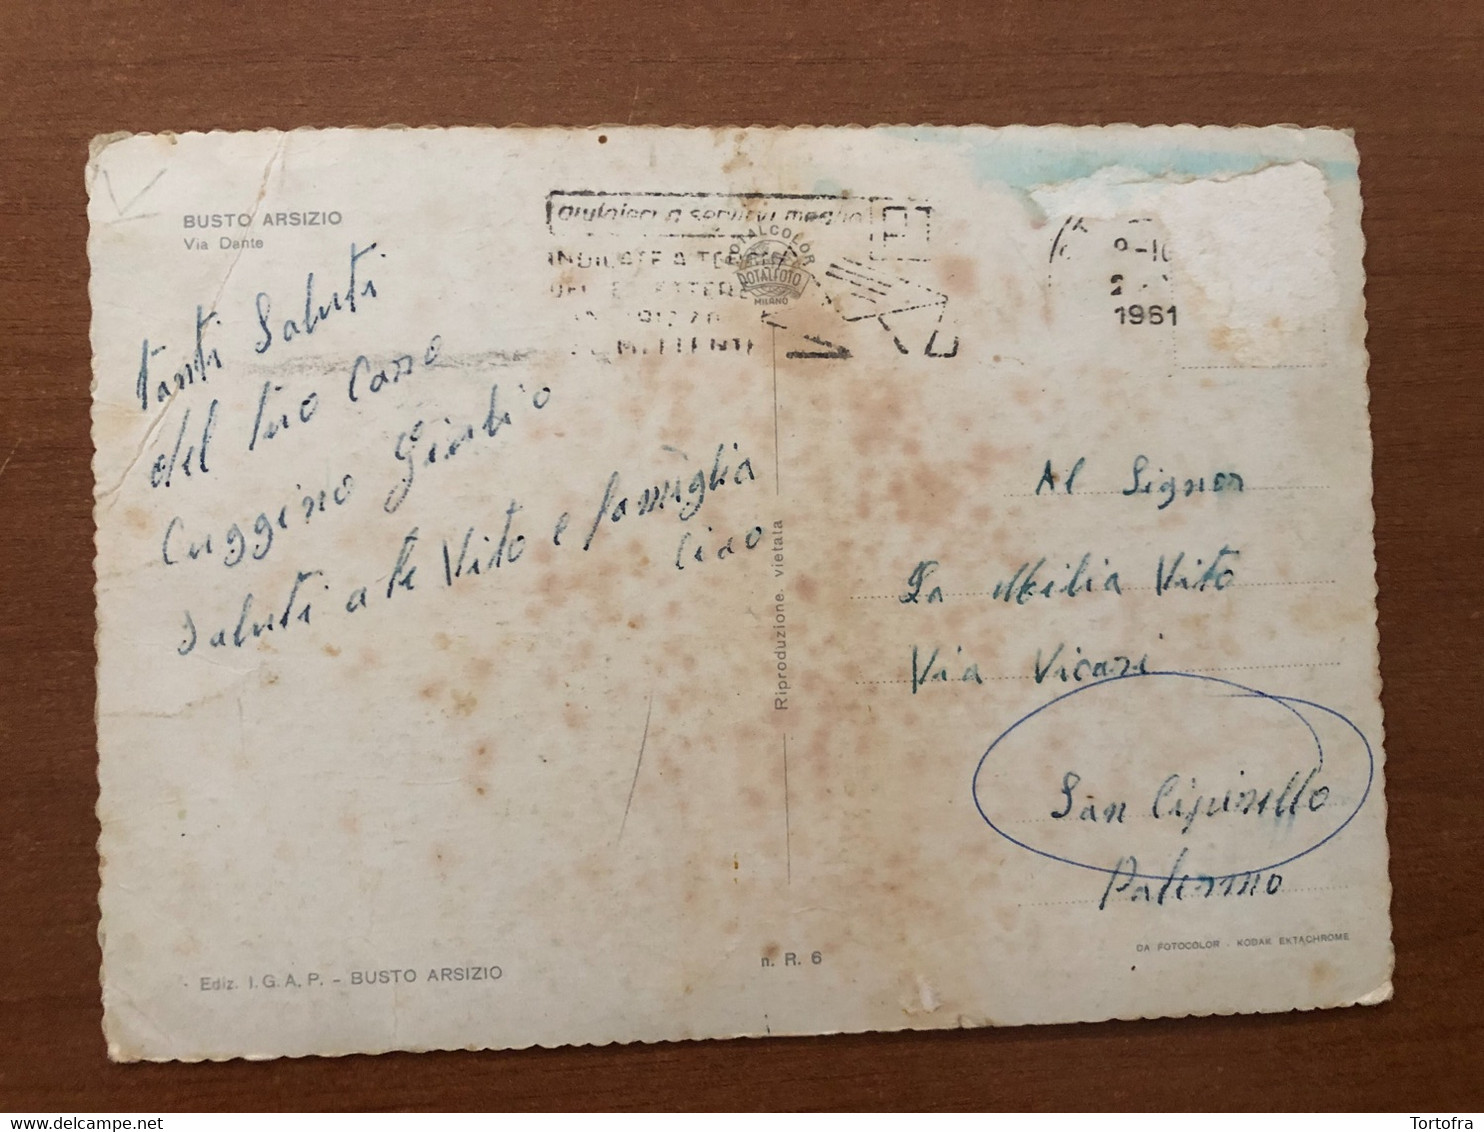 BUSTO ARSIZIO
Via Dante
aiutateci a servirvi meglio
INDICATE A TERGO
ROTALCOLOR
ROTALFOTO
MILANO
1961
tanti Saluti
del tuo Caro
Cuggino Giulio
Saluti a te Vito e famiglia
Ciao
Riproduzione vietata
Al Signor
La Milia Vito
Via Vicari
San Cipirello
Palermo
DA FOTOCOLOR - KODAK EKTACHROME
n. R. 6
Ediz. I.G.A.P. - BUSTO ARSIZIO
Tortofra